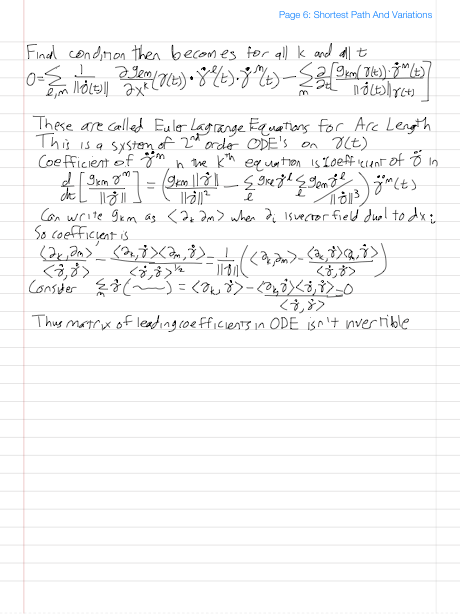 Page 6: Shortest Path And Variations
Final condition then becomes for all k and all t
0 = Σ_{l,m} 1/||γ̇(t)|| ∂g_{lm}/∂x^k (γ(t)) · γ̇^l(t) · γ̇^m(t) − Σ_m ∂/∂t [g_{km}(γ(t)) · γ̇^m(t) / ||γ̇(t)||_{γ(t)}]
These are called Euler Lagrange Equations For Arc Length
This is a system of 2nd order ODE's on γ(t)
Coefficient of γ̈^m in the k^th equation is coefficient of γ̈ in
d/dt [g_{km} γ^m / ||γ̇||] = (g_{km} ||γ̇|| / ||γ̇||^2 − Σ_l g_{kl} γ̇^l Σ_l g_{lm} γ̇^l / ||γ̇||^3) γ̈^m(t)
Can write g_{km} as <∂_k, ∂_m> when ∂_i is vector field dual to dx_i
So coefficient is
<∂_k, ∂_m> / <γ̇, γ̇> − <∂_k, γ̇><∂_m, γ̇> / <γ̇, γ̇>^{1/2} = 1/||γ̇|| (<∂_k, ∂_m> − <∂_k, γ̇><∂_m, γ̇> / <γ̇, γ̇>)
Consider Σ_m γ̇ (~~~) = <∂_k, γ̇> − <∂_k, γ̇><γ̇, γ̇> / <γ̇, γ̇> = 0
Thus matrix of leading coefficients in ODE isn't invertible